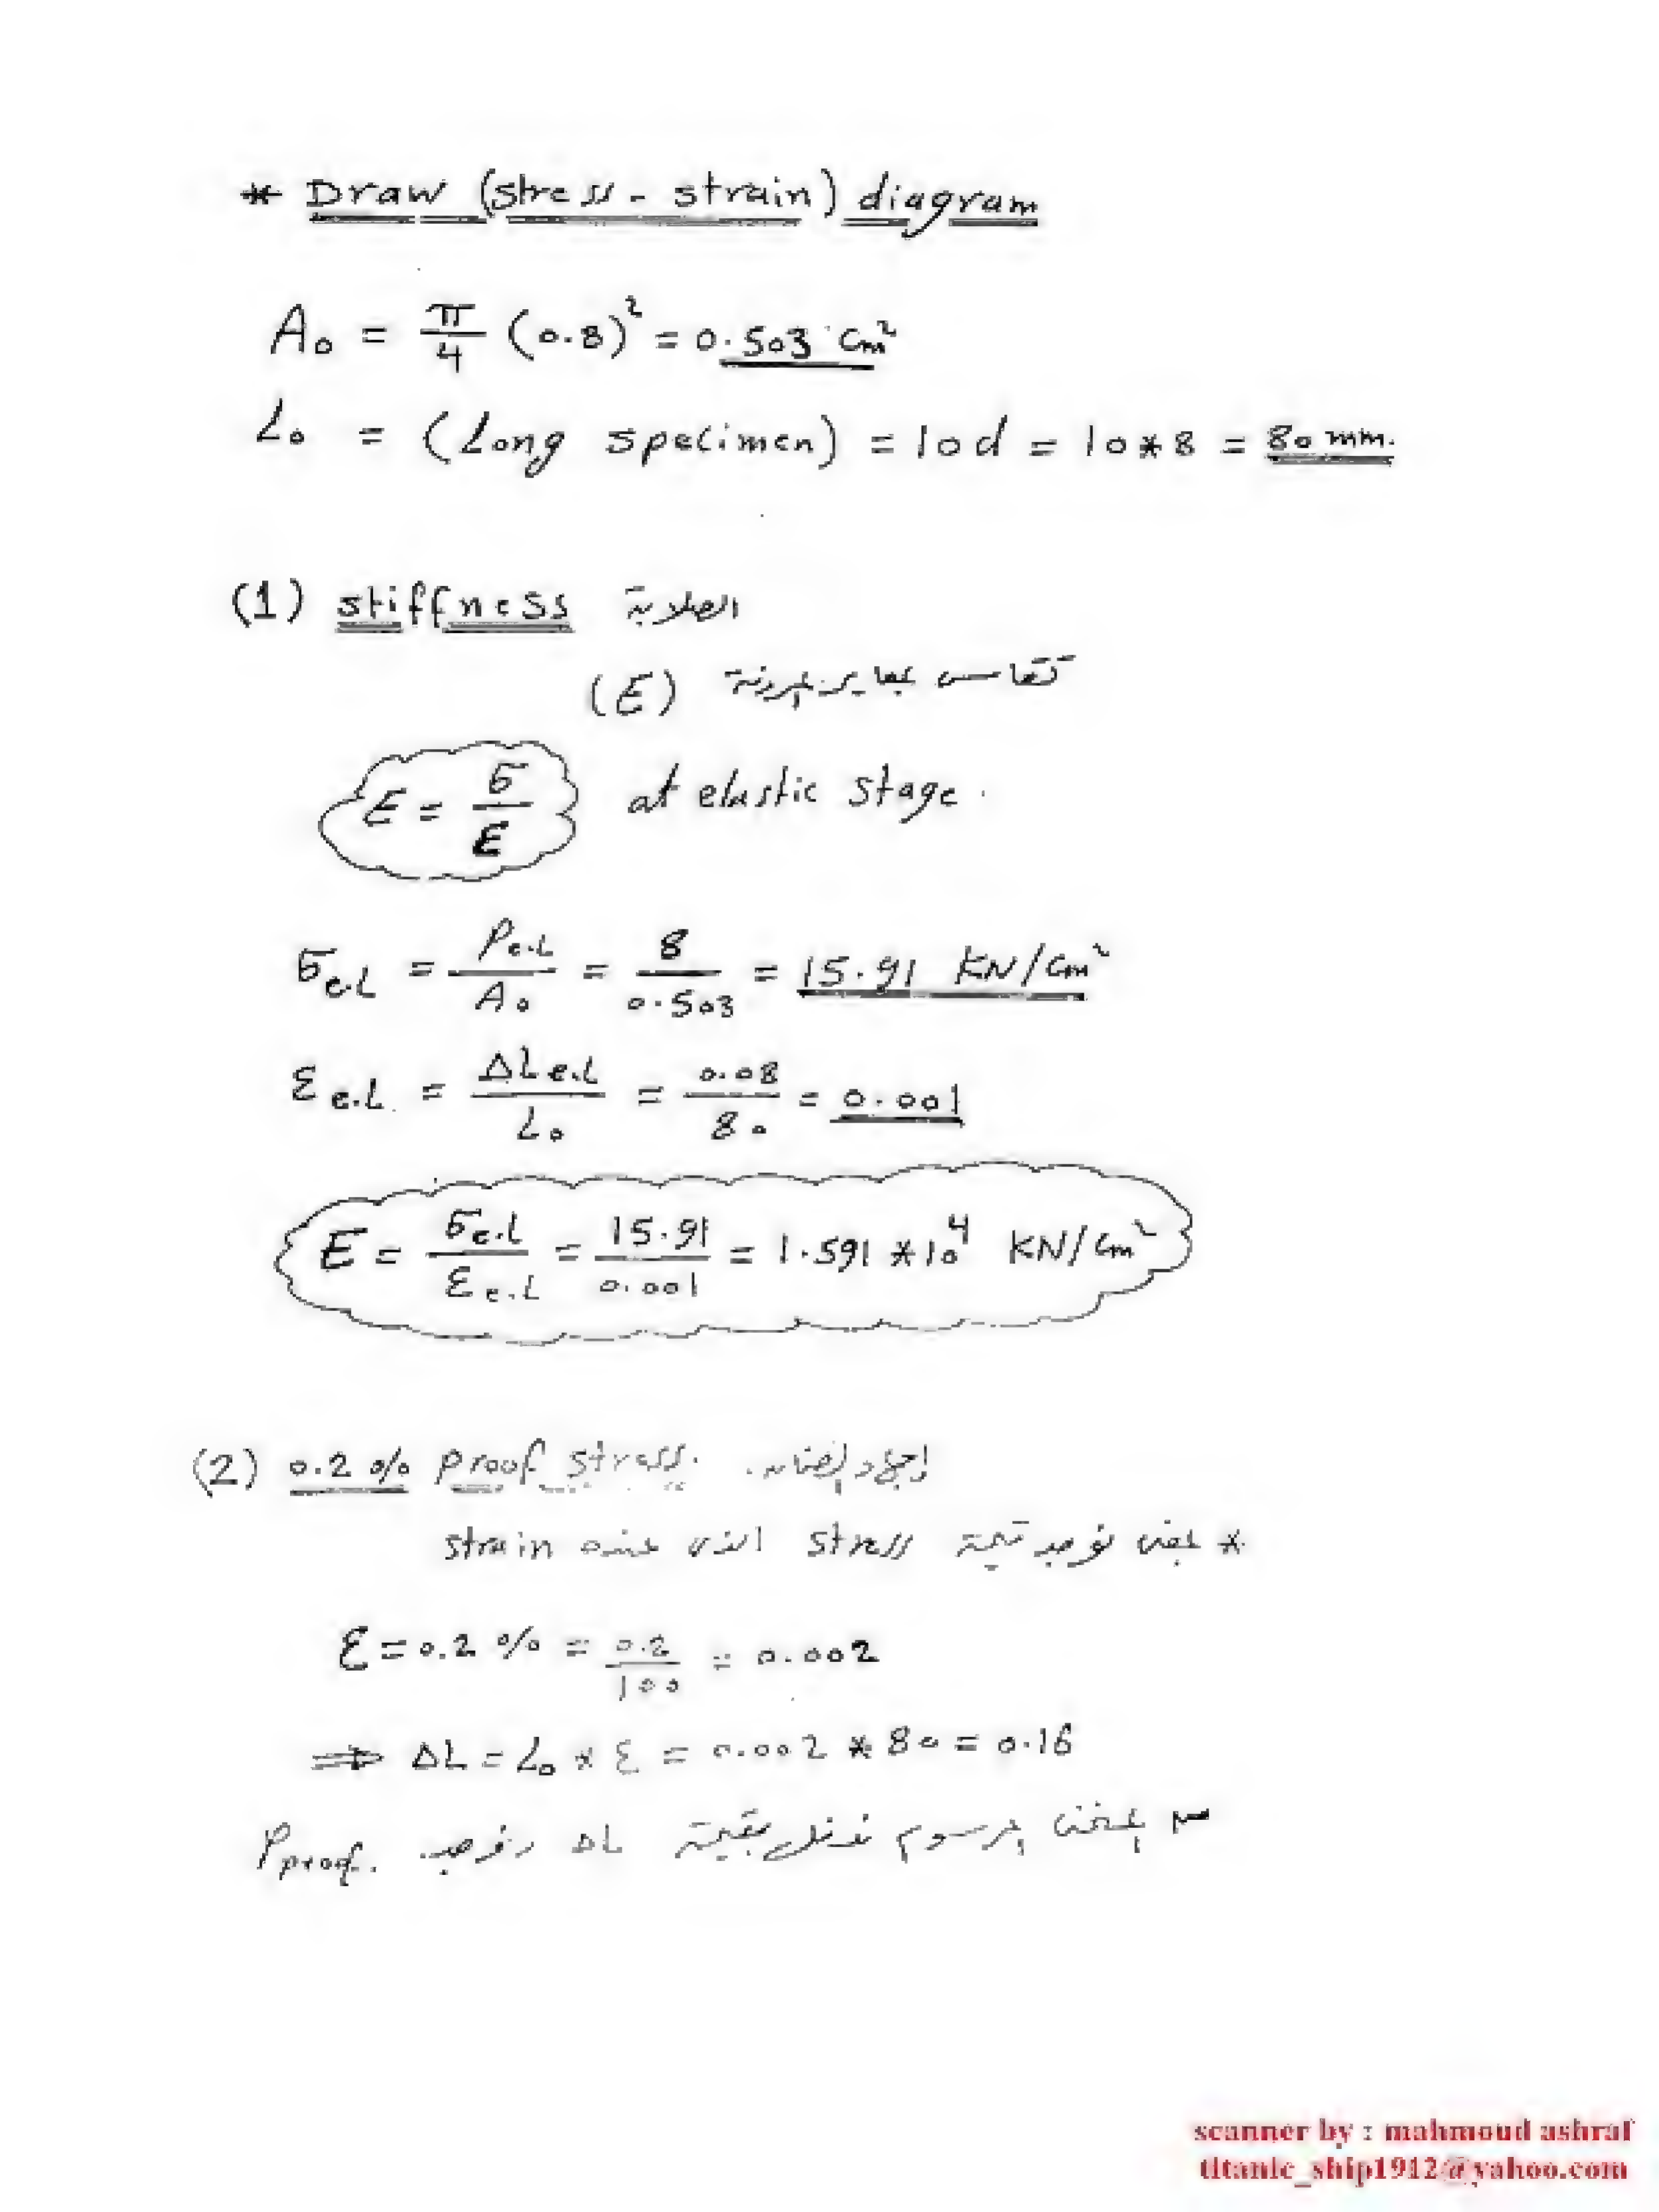 * Draw (stress - strain) diagram
A₀ = π/4 (0.8)² = 0.503 cm²
L₀ = (Long specimen) = 10d = 10*8 = 80 mm.
(1) stiffness الصلابة
تقاس بمعاير المرونة (E)
E = σ/ε at elastic stage.
σe.L = Pe.L/A₀ = 8/0.503 = 15.91 KN/cm²
εe.L = ΔLe.L/L₀ = 0.08/80 = 0.001
E = σe.L/εe.L = 15.91/0.001 = 1.591 *10⁴ KN/cm²
(2) 0.2 % proof stress. إجهاد الضمان.
* بمعنى نوجد قيمة stress الذى عنده strain
ε = 0.2 % = 0.2/100 = 0.002
⇒ ΔL = L₀ * ε = 0.002 * 80 = 0.16
المنحنى المرسوم ندخل بقيمة ΔL ونوجد Pproof.
scanner by : mahmoud ashraf
titanic_ship1912@yahoo.com